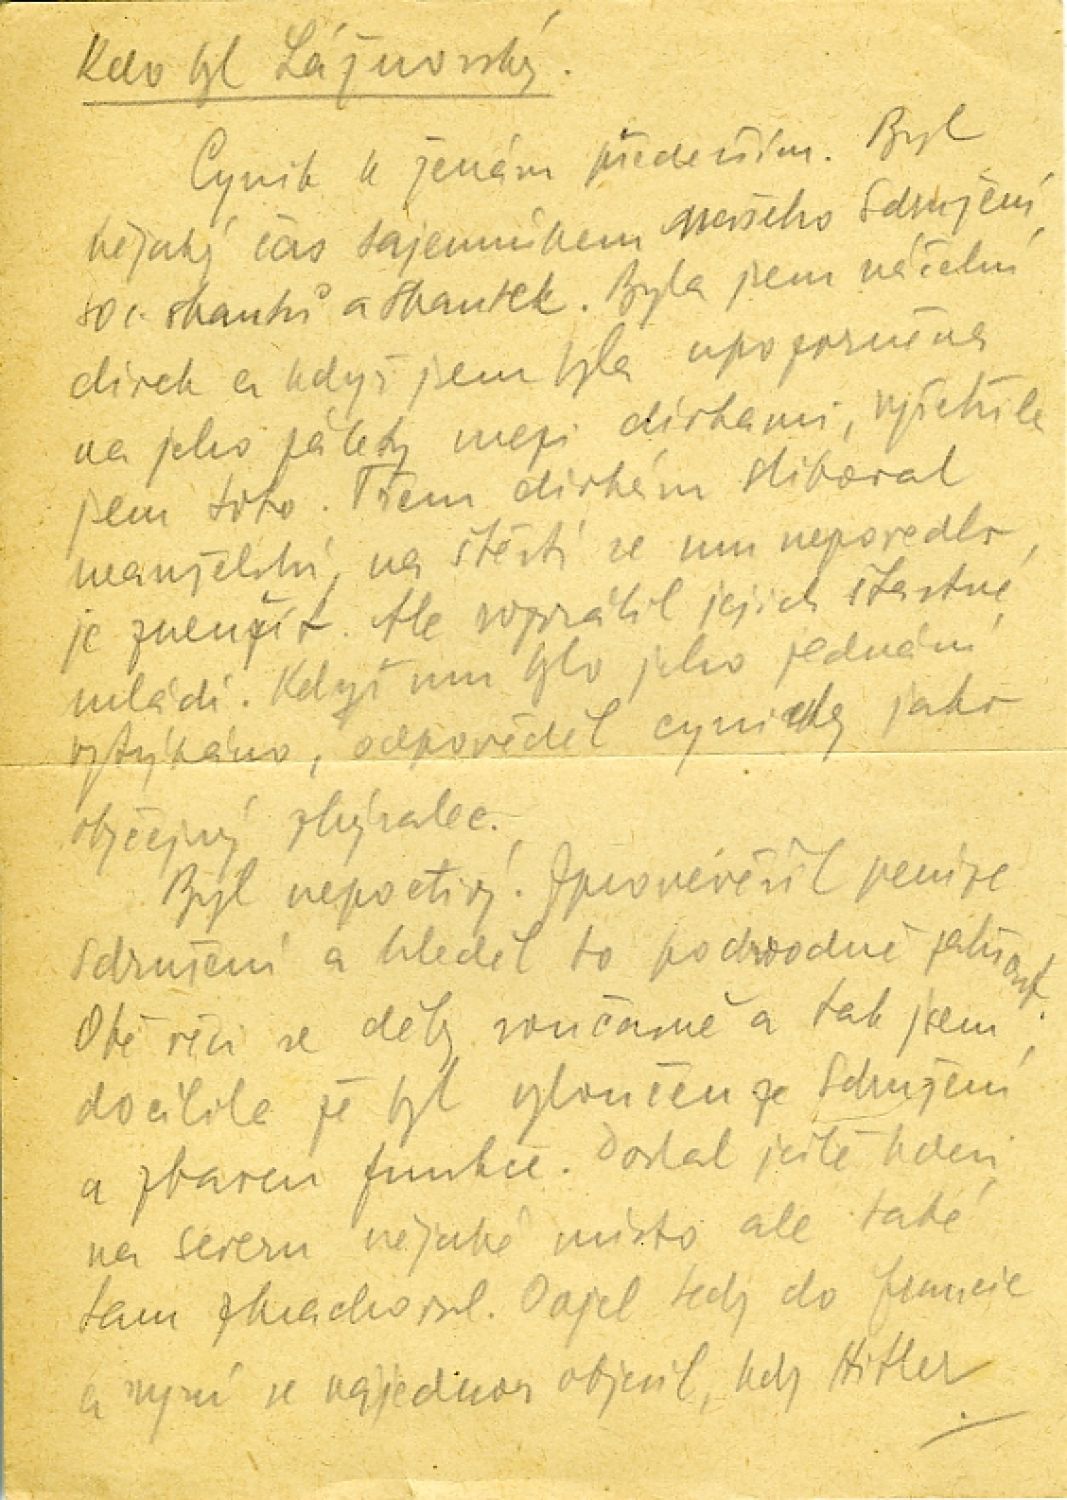 Kdo byl Lážnovský.
Cynik k ženám především. Byl
nějaký čas tajemníkem našeho Sdružení
soc. skautů a skautek. Byla jsem náčelní
dívek a když jsem byla upozorněna
na jeho zálety mezi dívkami, vyšetřila
jsem toto. Třem dívkám sliboval
manželství, na štěstí se mu nepovedlo,
je zneužít. Ale rozvrátil jejich šťastné
mládí. Když mu bylo jeho jednání
vytýkáno, odpověděl cynicky jako
obyčejný zhýralec.
Byl nepoctivý. Zpronevěřil peníze
Sdružení a hleděl to podvodně
Obě věci se děly současně a tak jsem
docílila že byl vyloučen ze Sdružení
a zbaven funkce. Dostal ještě kdesi
na severu nějaké místo ale také
tam zhachoval. Odjel tedy do Francie
a nyní se najednou objevil, kdy Hitler